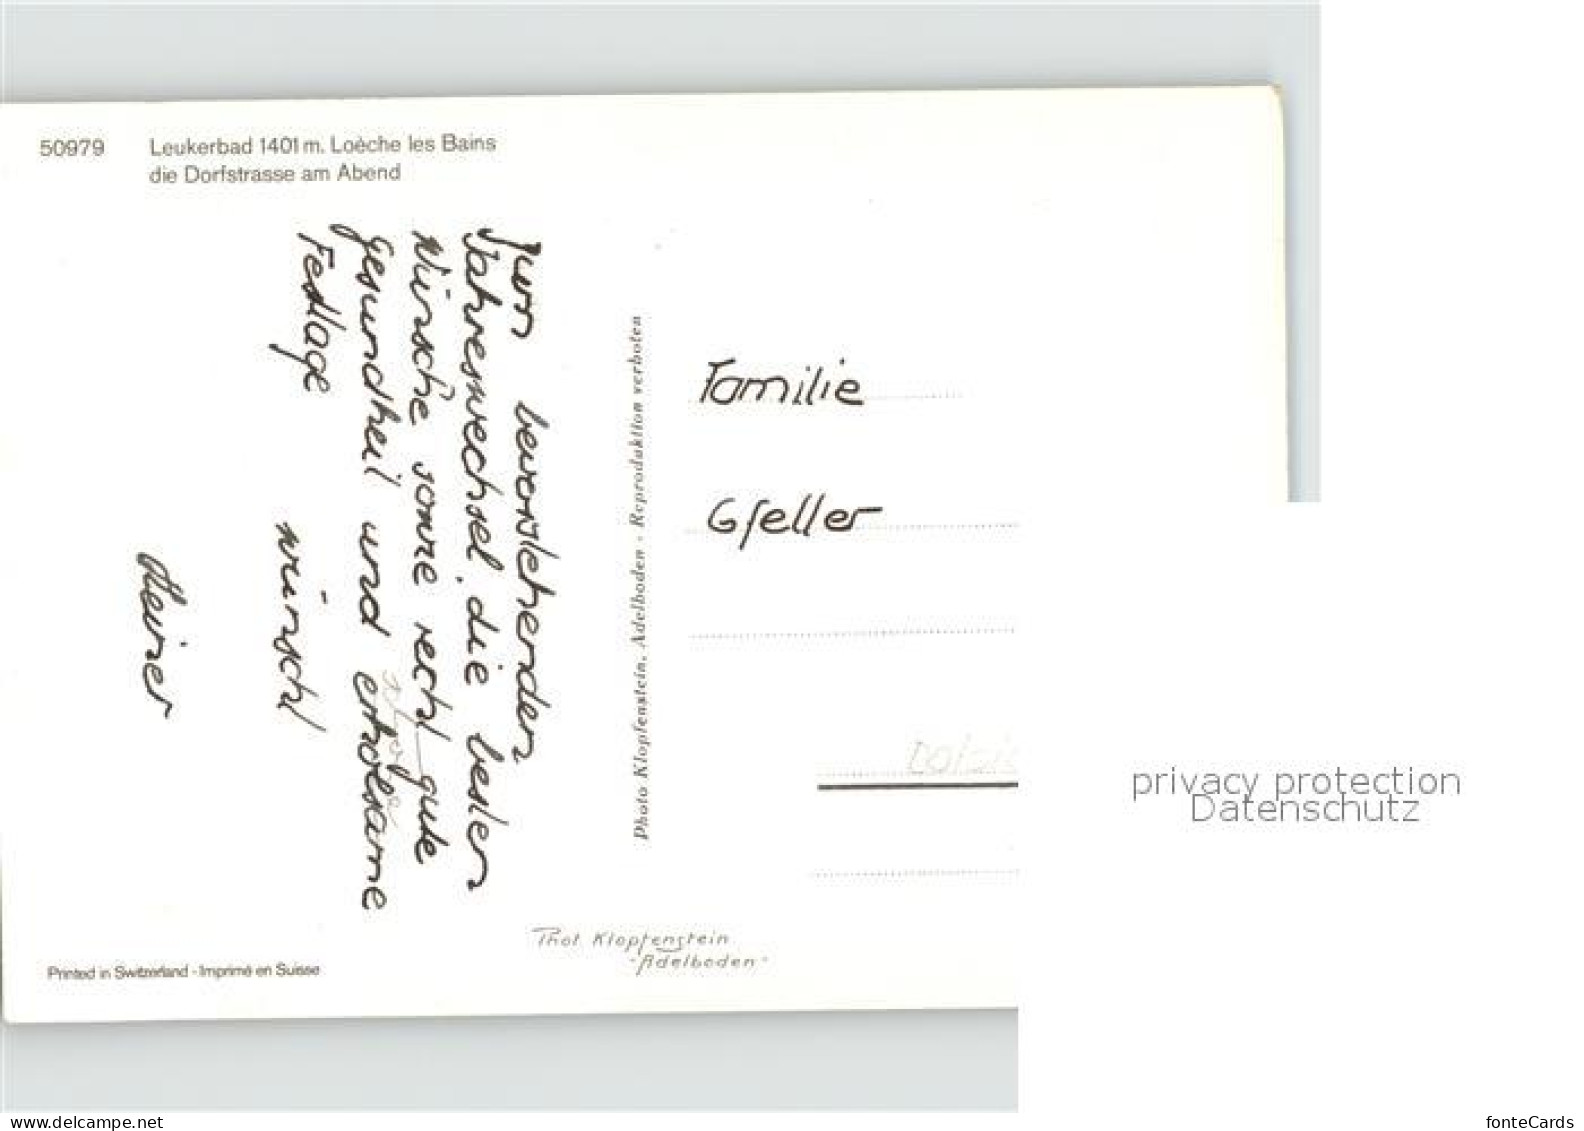 50979 Leukerbad 1401 m. Loèche les Bains
die Dorfstrasse am Abend
Zum bevorstehenden
Jahreswechsel, die besten
Wünsche sowie recht gute
Gesundheit und erholsame
Festtage
wünscht
Heiner
Photo Klopfenstein, Adelboden - Reproduktion verboten
Familie
Gfeller
Phot Klopfenstein
"Adelboden"
Printed in Switzerland - Imprimé en Suisse
privacy protection
Datenschutz
fonteCards